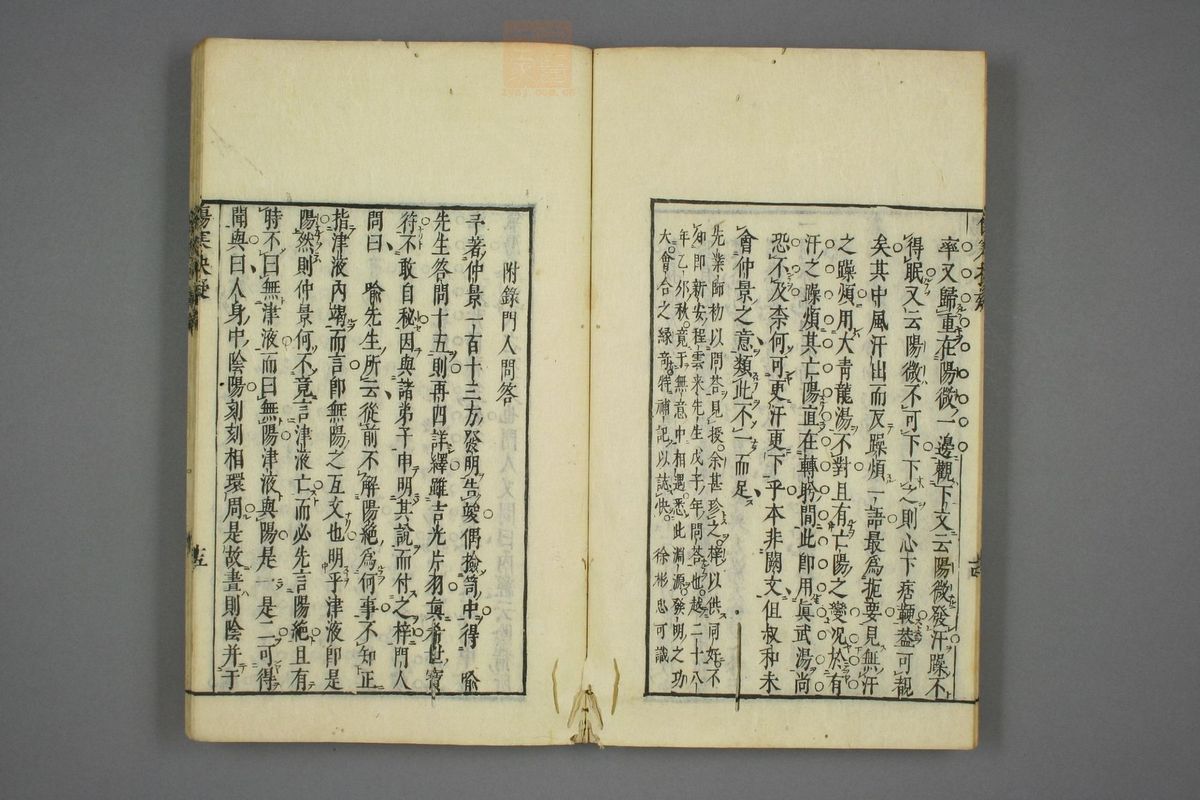 率又歸重在陽微一邊觀下文云陽微發汗躁不
得眠又云陽微不可下下之則心下痞鞕葢可覩
矣其中風汗出而反躁煩一語最爲扼要見無汗
之躁煩用大青龍湯不對且有亡陽之變况於有
汗之躁煩其亡陽直在轉盻間此卽用眞武湯尚
恐不及柰何可更汗更下乎本非闕文但叔和未
會仲景之意類此不一而足
先業師初以問荅見授余甚珍之梓以供同好不
知卽新安程雲来先生戊子年問荅也越二十八
年乙夘秋竟于無意中相遇悉此淵源發明之功
大會合之緣竒特補記以誌快 徐彬忠可識
附錄門人問答
予著仲景一百十三方發明告竣偶撿笥中得 喻
先生答問十五則再四詳繹雖吉光片羽眞希世寶
符不敢自秘因與諸弟子申明其說而付之梓門人
問曰 喻先生所云從前不解陽絶爲何事不知正
指津液内竭而言卽無陽之互文也明乎津液卽是
陽然則仲景何不竟言津液亡而必先言陽絶且有
時不曰無津液而曰無陽津液與陽是一是二可得
聞與曰人身中陰陽刻刻相環周是故晝則陰并于
傷寒抉疑
十五